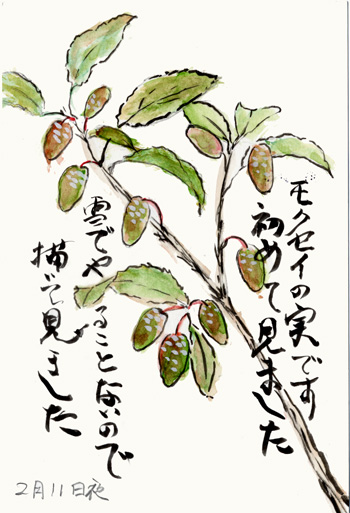 モクセイの実です
初めて見ました
雪でやることないので
描いて見ました
2月11日夜